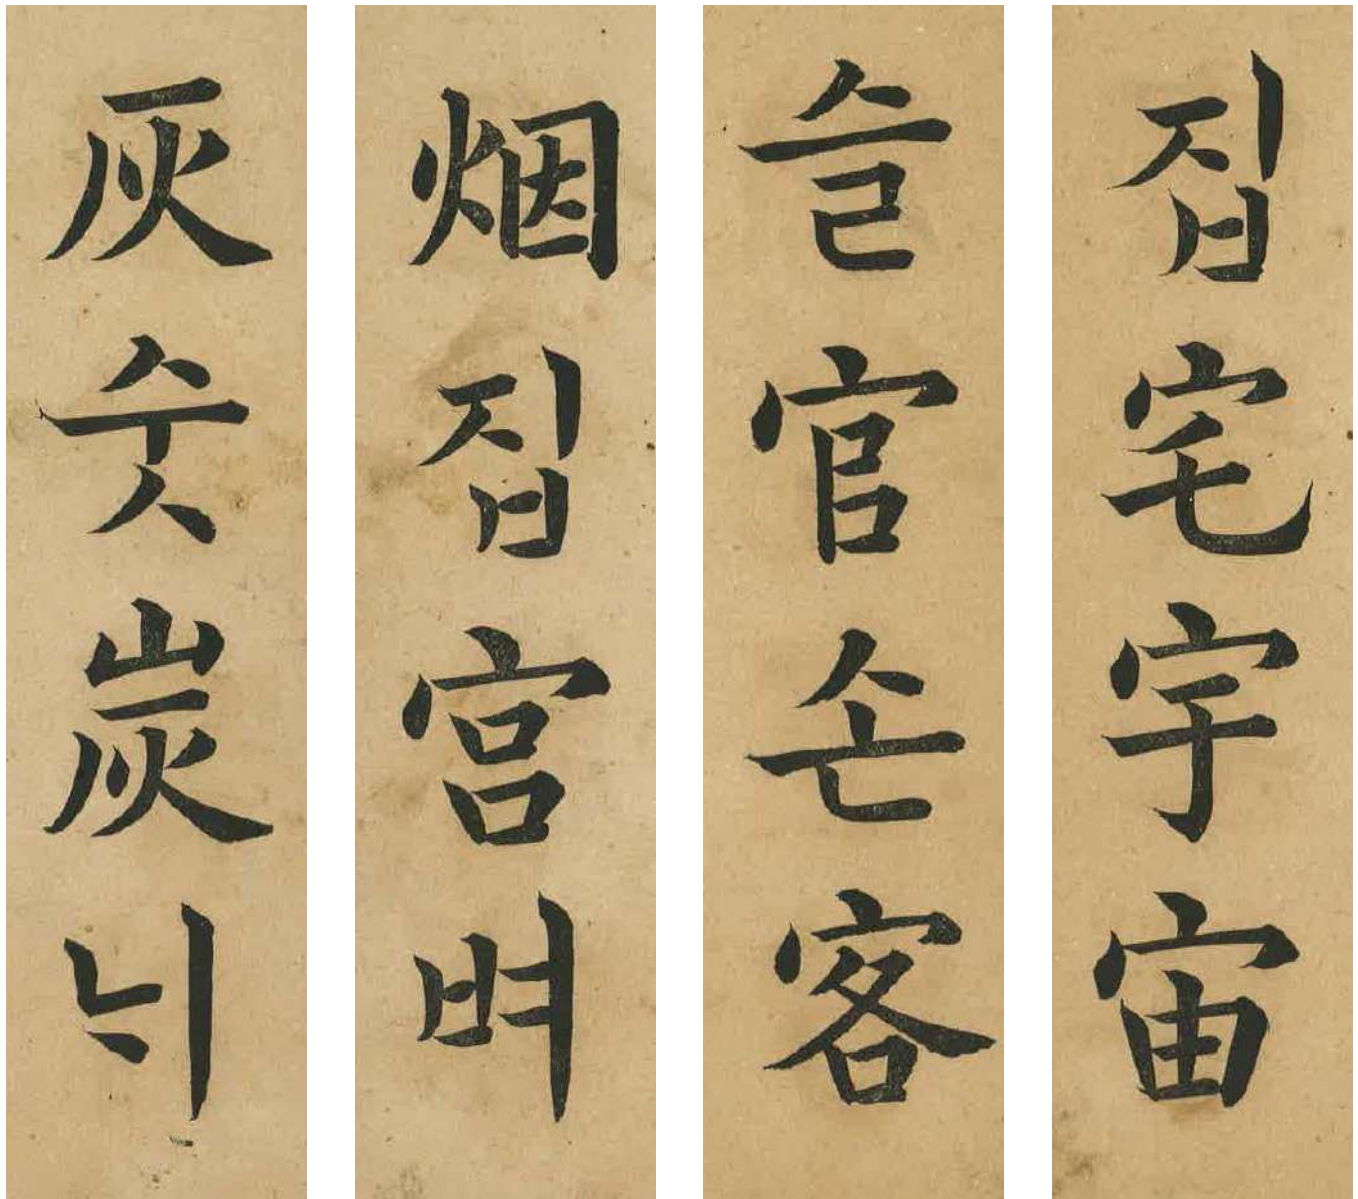 灰숫炭ᄂᆡ
烟집宮벼
슬官손客
집宅宇宙